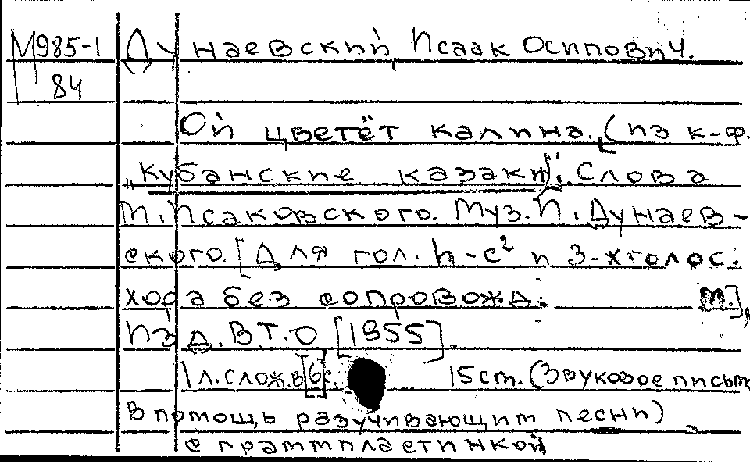 М985-1 Дунаевский, Исаак Осипович.
84
Ой цветёт калина. (из к-ф.
„Кубанские казаки"). Слова
М. Исаковского. Муз. И. Дунаев-
ского. [Для гол. h-c² и 3-хголос.
хора без сопровожд. м.],
Изд. В.Т.О [1955].
1 л. слож. в [6] с. 15 cm. (Звуковое письм
в помощь разучивающим песни)
с граммпластинкой